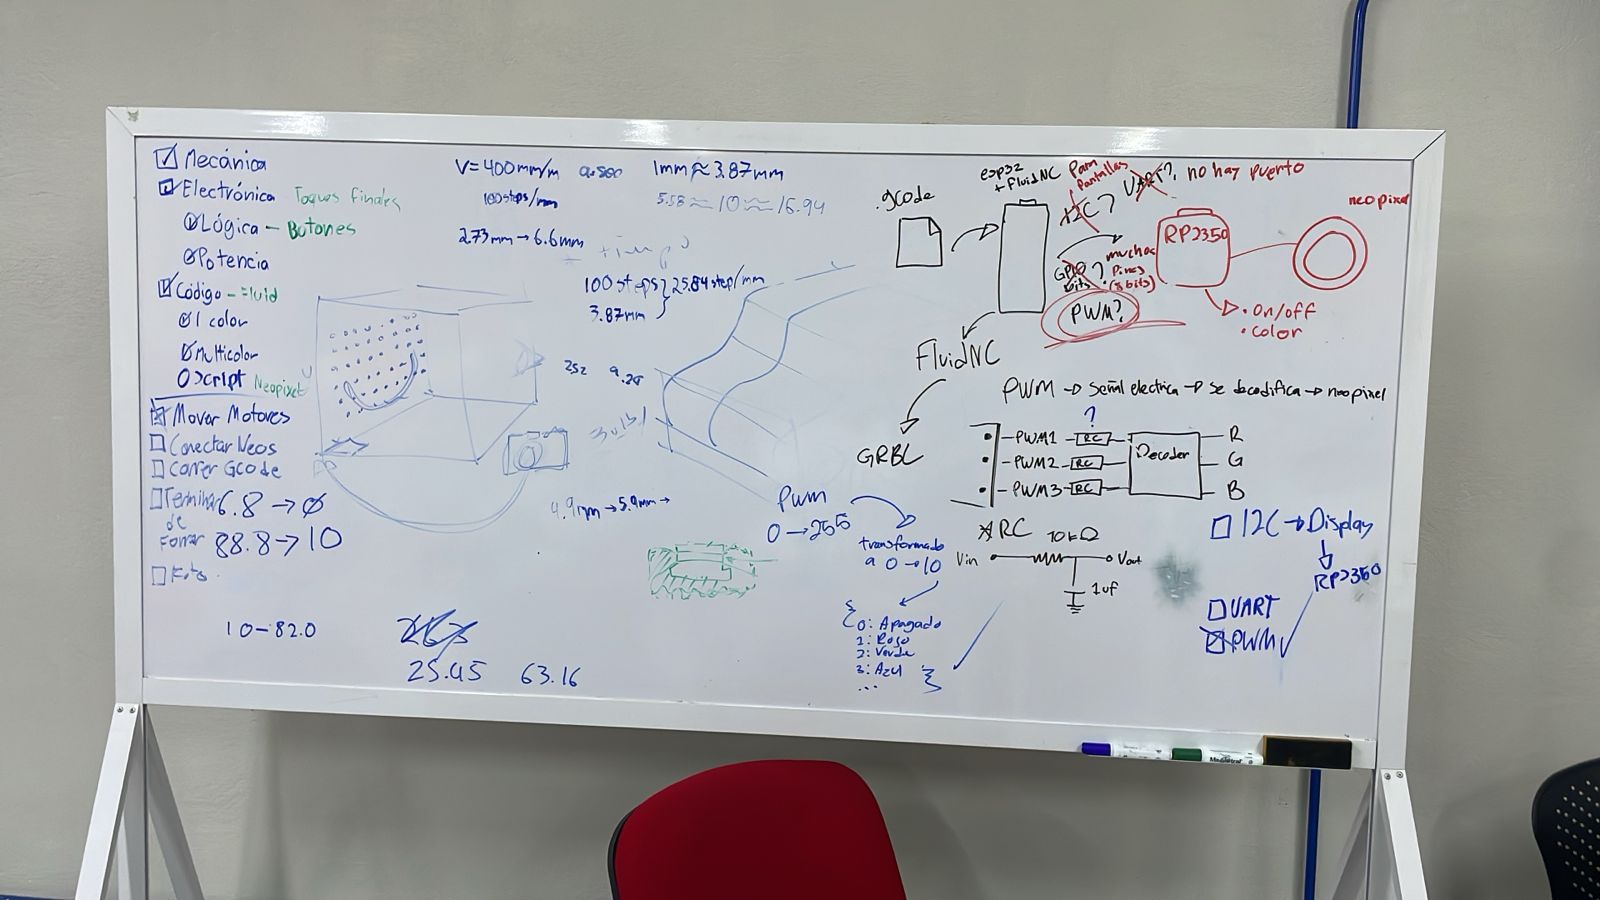 Mecánica
Electrónica Toques finales
Lógica - Botones
Potencia
Código - Fluid
1 color
Multicolor
Script Neopixel
Mover Motores
Conectar Neos
Correr Gcode
Terminar de Forrar
6.8 → 0
88.8 → 10
10-82.0
25.45 63.16
V=400mm/m
100steps/mm
1mm ≈ 3.87mm
5.58 ≈ 10 ≈ 16.94
2.73mm → 6.6mm
100 steps } 25.84 step/mm
3.87mm
4.9mm → 5.9mm →
.gcode
esp32
+ FluidNC
Para Pantallas
I2C?
UART?, no hay puerto
GPIO?
bits
muchos
Pines
(8 bits)
PWM?
RP2350
neopixel
• On/off
• color
FluidNC
GRBL
PWM → señal electrica → se decodifica → neopixel
?
PWM1 RC
PWM2 RC
PWM3 RC
Decoder
R
G
B
Pwm
0 → 255
transformado
a 0 → 10
{
0: Apagado
1: Rojo
2: Verde
3: Azul
...
}
RC
10kΩ
Vin
Vout
1uf
I2C → Display
RP2350
UART
PWM